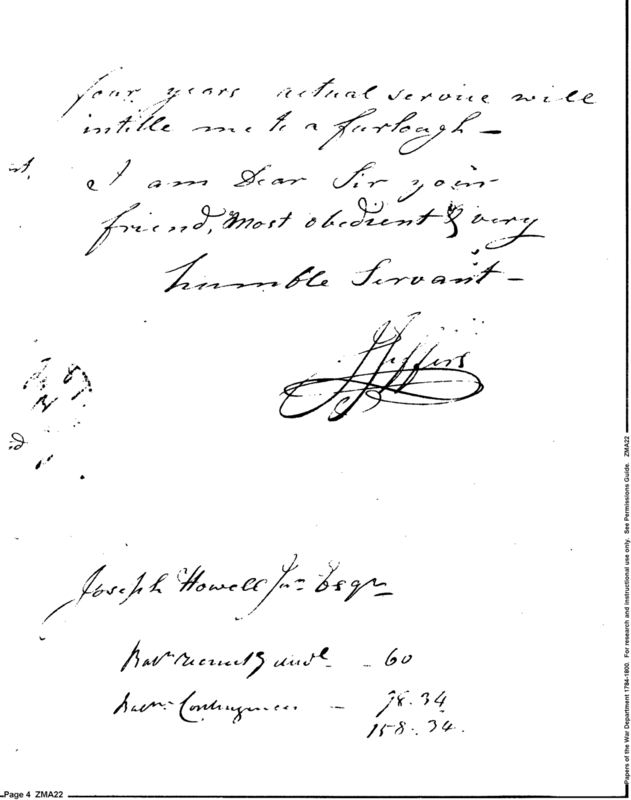 four years actual service will
intitle me to a furlough —
I am Dear Sir your
friend, Most obedient & very
humble Servant —
J Jeffers
Joseph Howell Junr Esqr
60
Contingencies — 98.34
158.34.
Page 4 ZMA22
Papers of the War Department 1784-1800. For research and instructional use only. See Permissions Guide. ZMA22